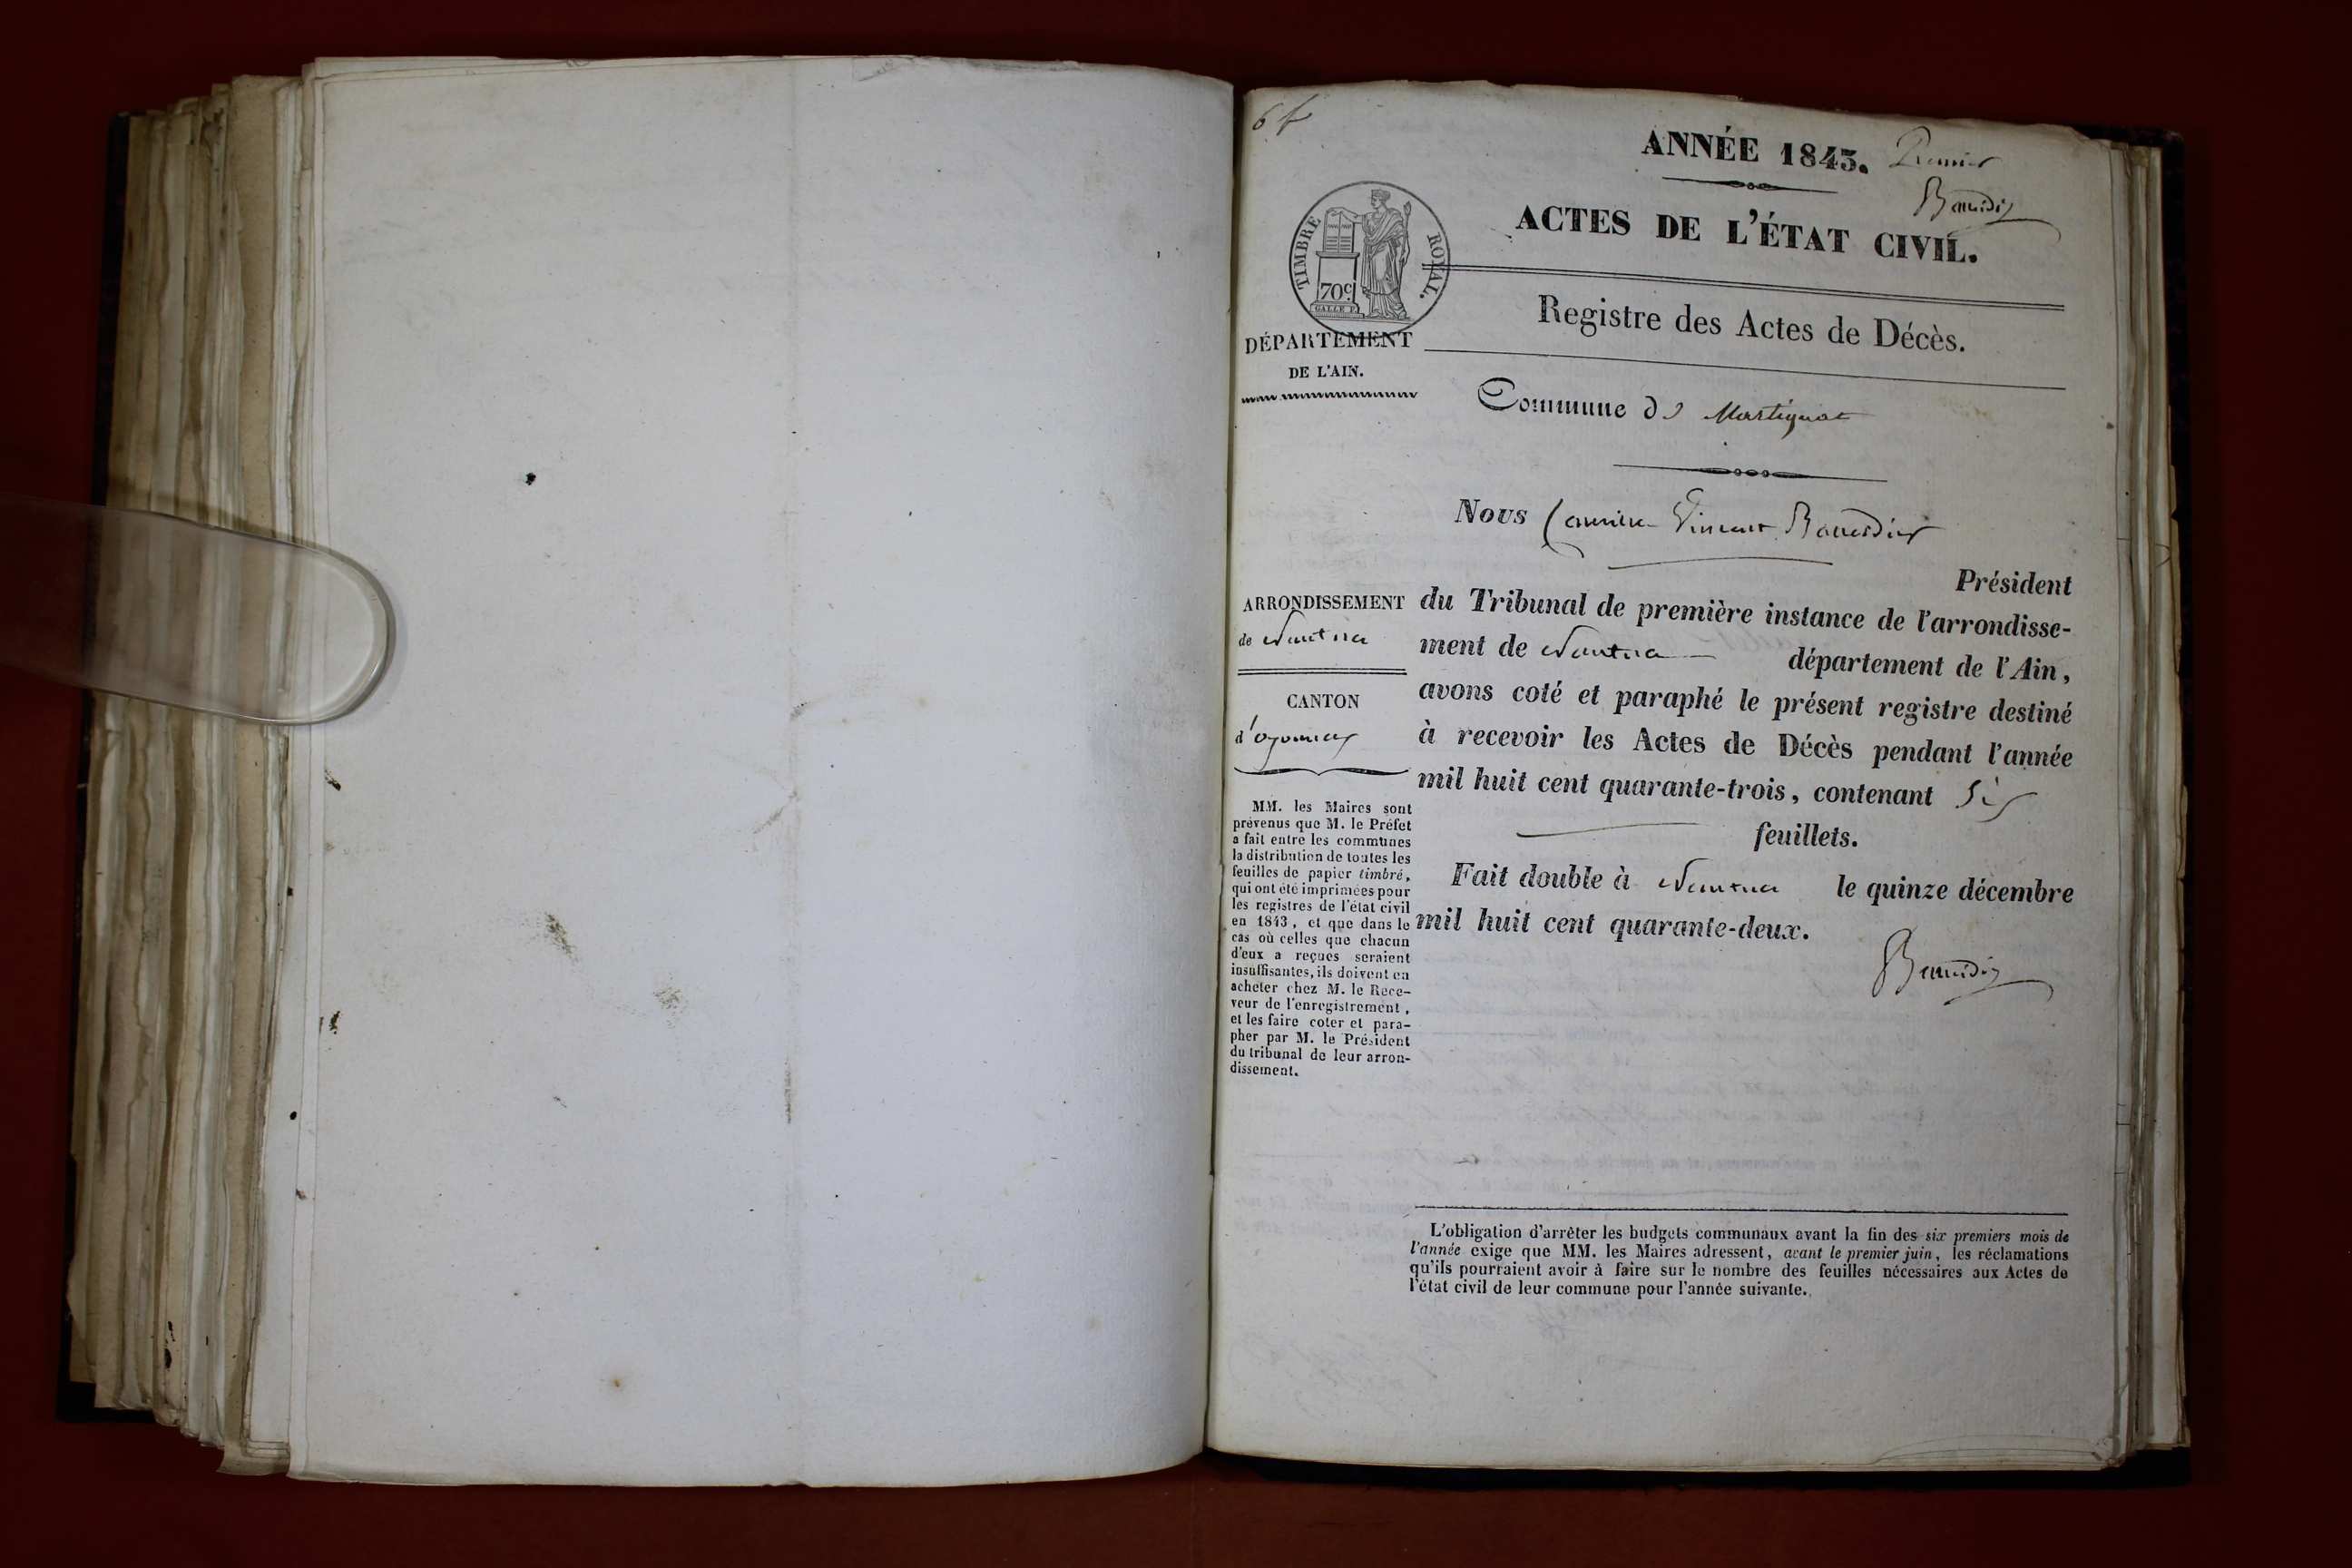 6 f
ANNÉE 1843. Premier
Baudier
ACTES DE L'ÉTAT CIVIL.
TIMBRE ROYAL.
70c
GALLE F.
Registre des Actes de Décès.
DÉPARTEMENT
DE L'AIN.
Commune de Martignat
Nous Vincent Baudier
Président
du Tribunal de première instance de l'arrondisse-
ment de Nantua département de l'Ain,
avons coté et paraphé le présent registre destiné
à recevoir les Actes de Décès pendant l'année
mil huit cent quarante-trois, contenant Six
feuillets.
Fait double à Nantua le quinze décembre
mil huit cent quarante-deux.
Baudier
ARRONDISSEMENT
de Nantua
CANTON
d'oyonnax
MM. les Maires sont
prévenus que M. le Préfet
a fait entre les communes
la distribution de toutes les
feuilles de papier timbré,
qui ont été imprimées pour
les registres de l'état civil
en 1843, et que dans le
cas où celles que chacun
d'eux a reçues seraient
insuffisantes, ils doivent en
acheter chez M. le Rece-
veur de l'enregistrement,
et les faire coter et para-
pher par M. le Président
du tribunal de leur arron-
dissement.
L'obligation d'arrêter les budgets communaux avant la fin des six premiers mois de
l'année exige que MM. les Maires adressent, avant le premier juin, les réclamations
qu'ils pourraient avoir à faire sur le nombre des feuilles nécessaires aux Actes de
l'état civil de leur commune pour l'année suivante.